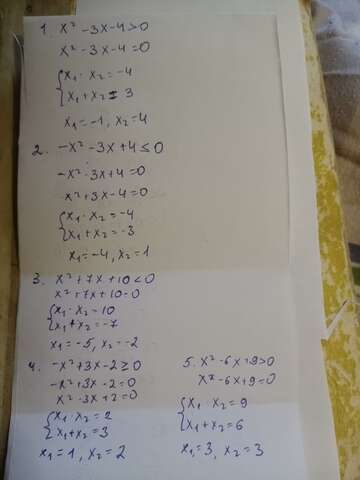 1. x² -3x-4>0
x² -3x-4=0
{x₁·x₂=-4
x₁+x₂=3
x₁=-1, x₂=4
2. -x²-3x+4≤0
-x²-3x+4=0
x²+3x-4=0
{x₁·x₂=-4
x₁+x₂=-3
x₁=-4, x₂=1
3. x²+7x+10<0
x²+7x+10=0
{x₁·x₂=10
x₁+x₂=-7
x₁=-5, x₂=-2
4. -x²+3x-2≥0
-x²+3x-2=0
x²-3x+2=0
{x₁·x₂=2
x₁+x₂=3
x₁=1, x₂=2
5. x²-6x+9>0
x²-6x+9=0
{x₁·x₂=9
x₁+x₂=6
x₁=3, x₂=3